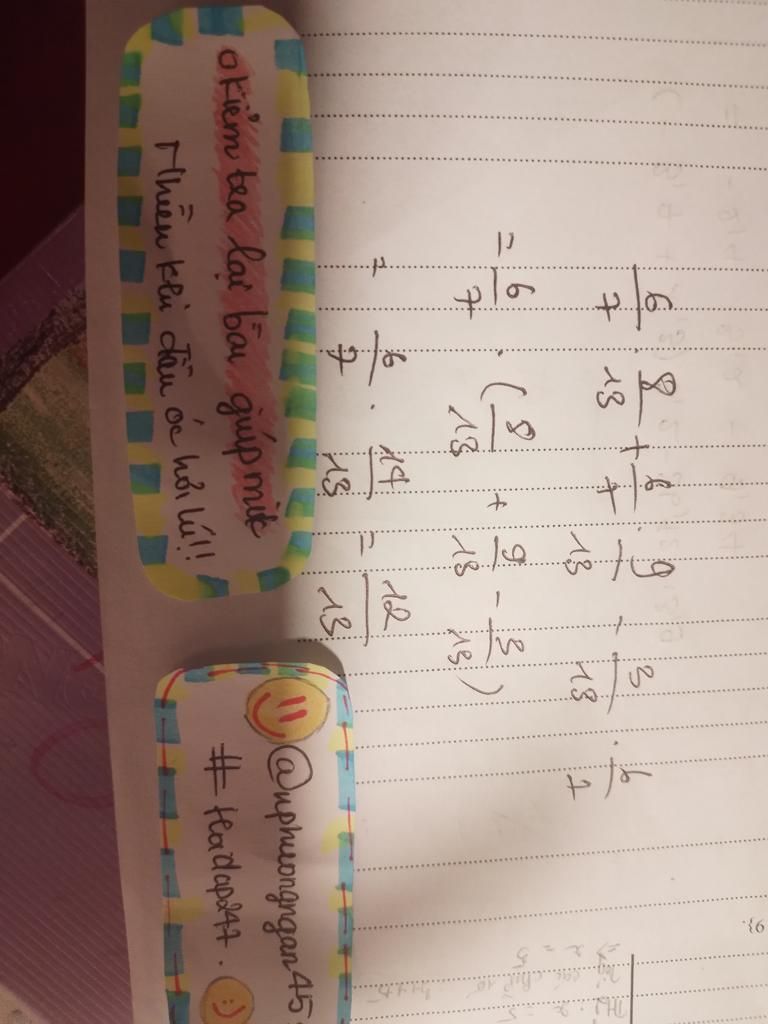 6/7 . 8/13 + 6/7 . 9/13 - 3/13 . 6/7
= 6/7 . (8/13 + 9/13 - 3/13)
= 6/7 . 14/13 = 12/13
o Kiểm tra lại bài giúp mik
Nhiều khi đầu óc hơi lú!!
@nphuongngan45
#Hoidap247. :)